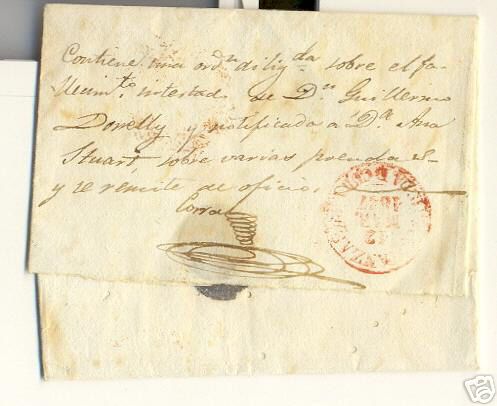 Contiene una ordn. dilig.da sobre el fa-
llecim.to intestado de Dn. Guillermo
Donelly y notificada a Da. Ana
Stuart, sobre varias prendas &-
y se remite de oficio.
Correa
12
ebY